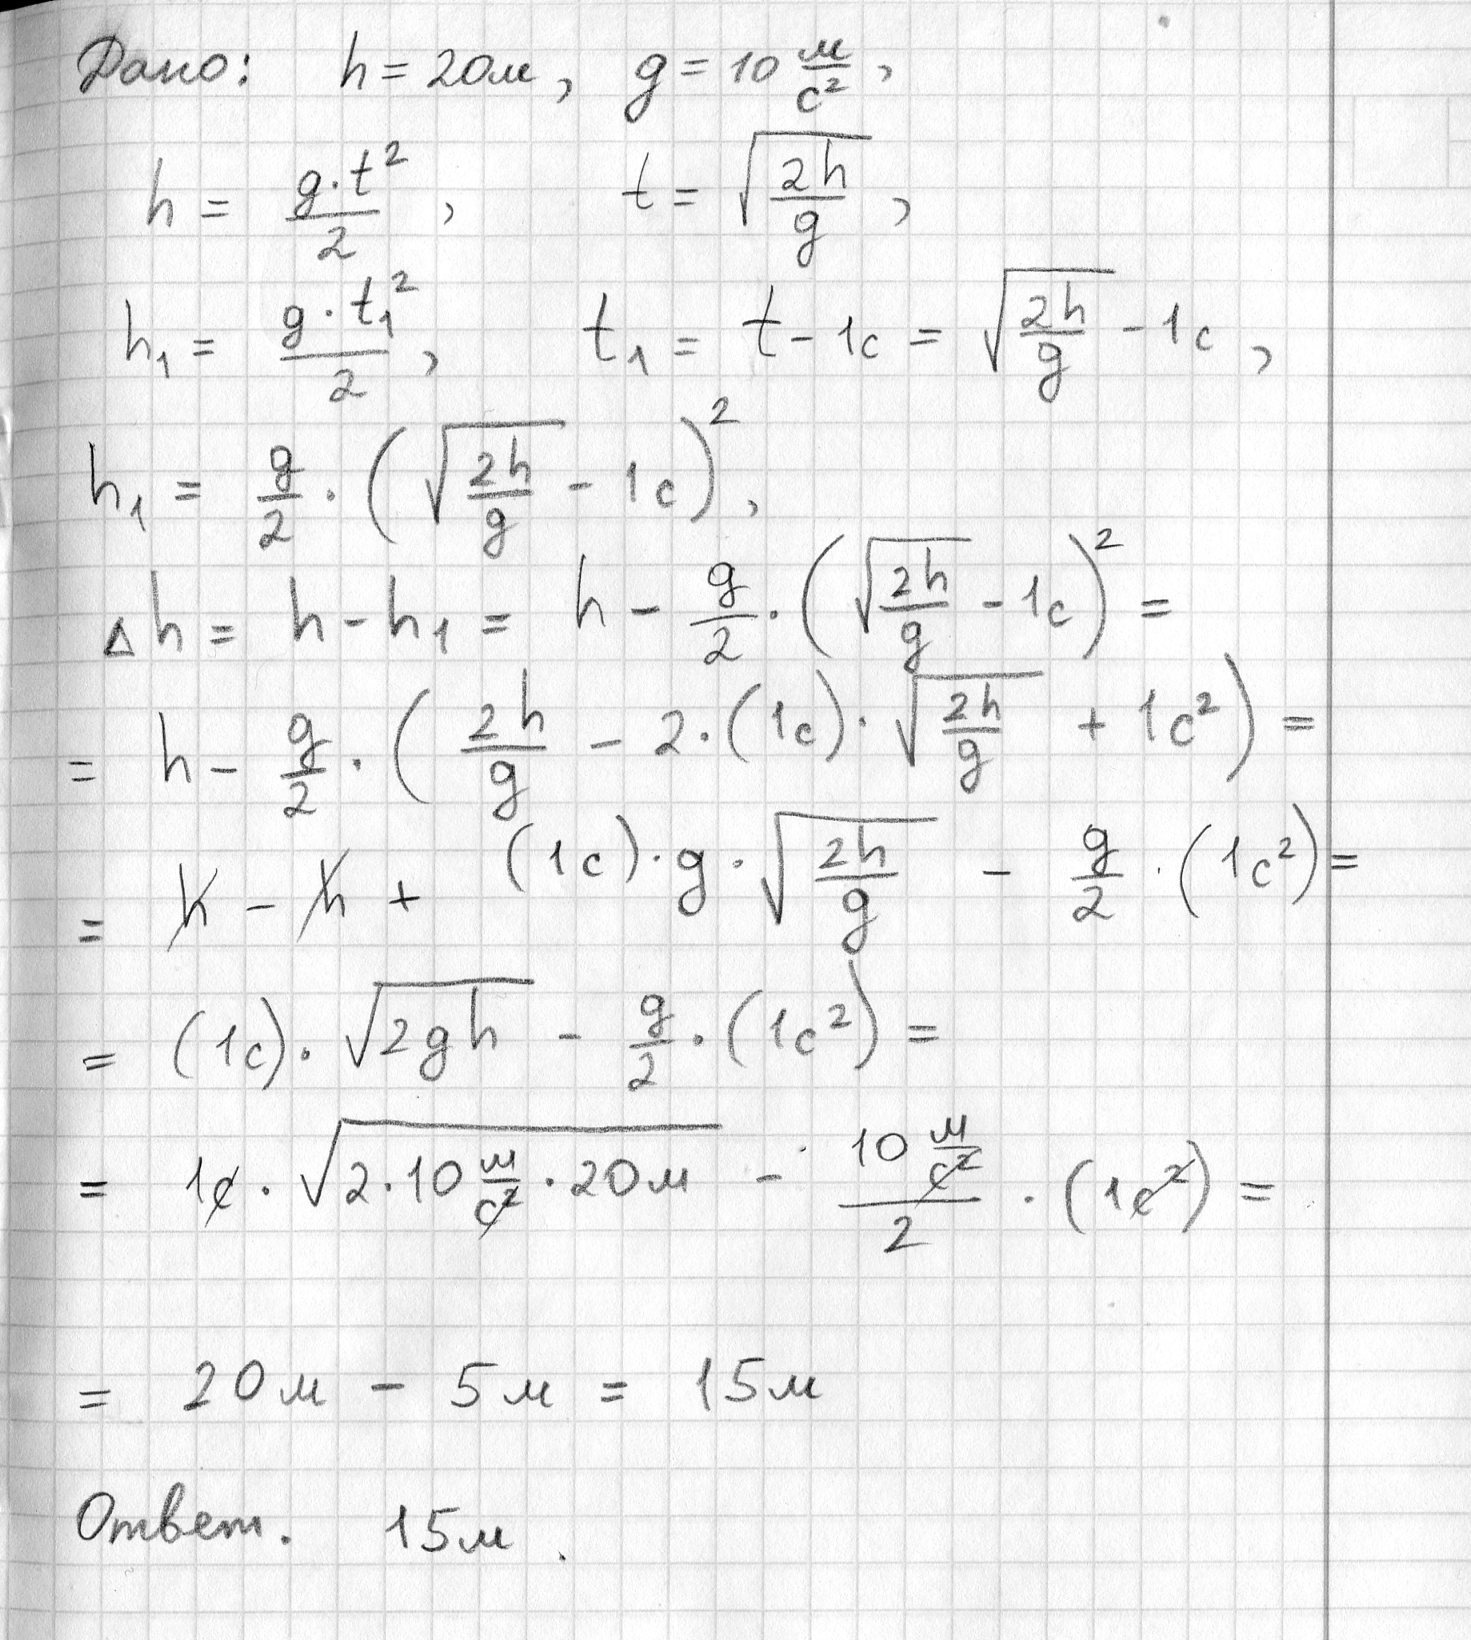 Дано: h = 20м, g = 10 м/с²,
h = g·t²/2, t = √(2h/g),
h₁ = g·t₁²/2, t₁ = t − 1с = √(2h/g) − 1с,
h₁ = g/2 · (√(2h/g) − 1с)²,
Δh = h − h₁ = h − g/2 · (√(2h/g) − 1с)² =
= h − g/2 · (2h/g − 2·(1с)·√(2h/g) + 1с²) =
= h − h + (1с)·g·√(2h/g) − g/2 · (1с²) =
= (1с)·√(2gh) − g/2 · (1с²) =
= 1с · √(2·10 м/с² · 20м) − (10 м/с²)/2 · (1с²) =
= 20м − 5м = 15м
Ответ. 15м.